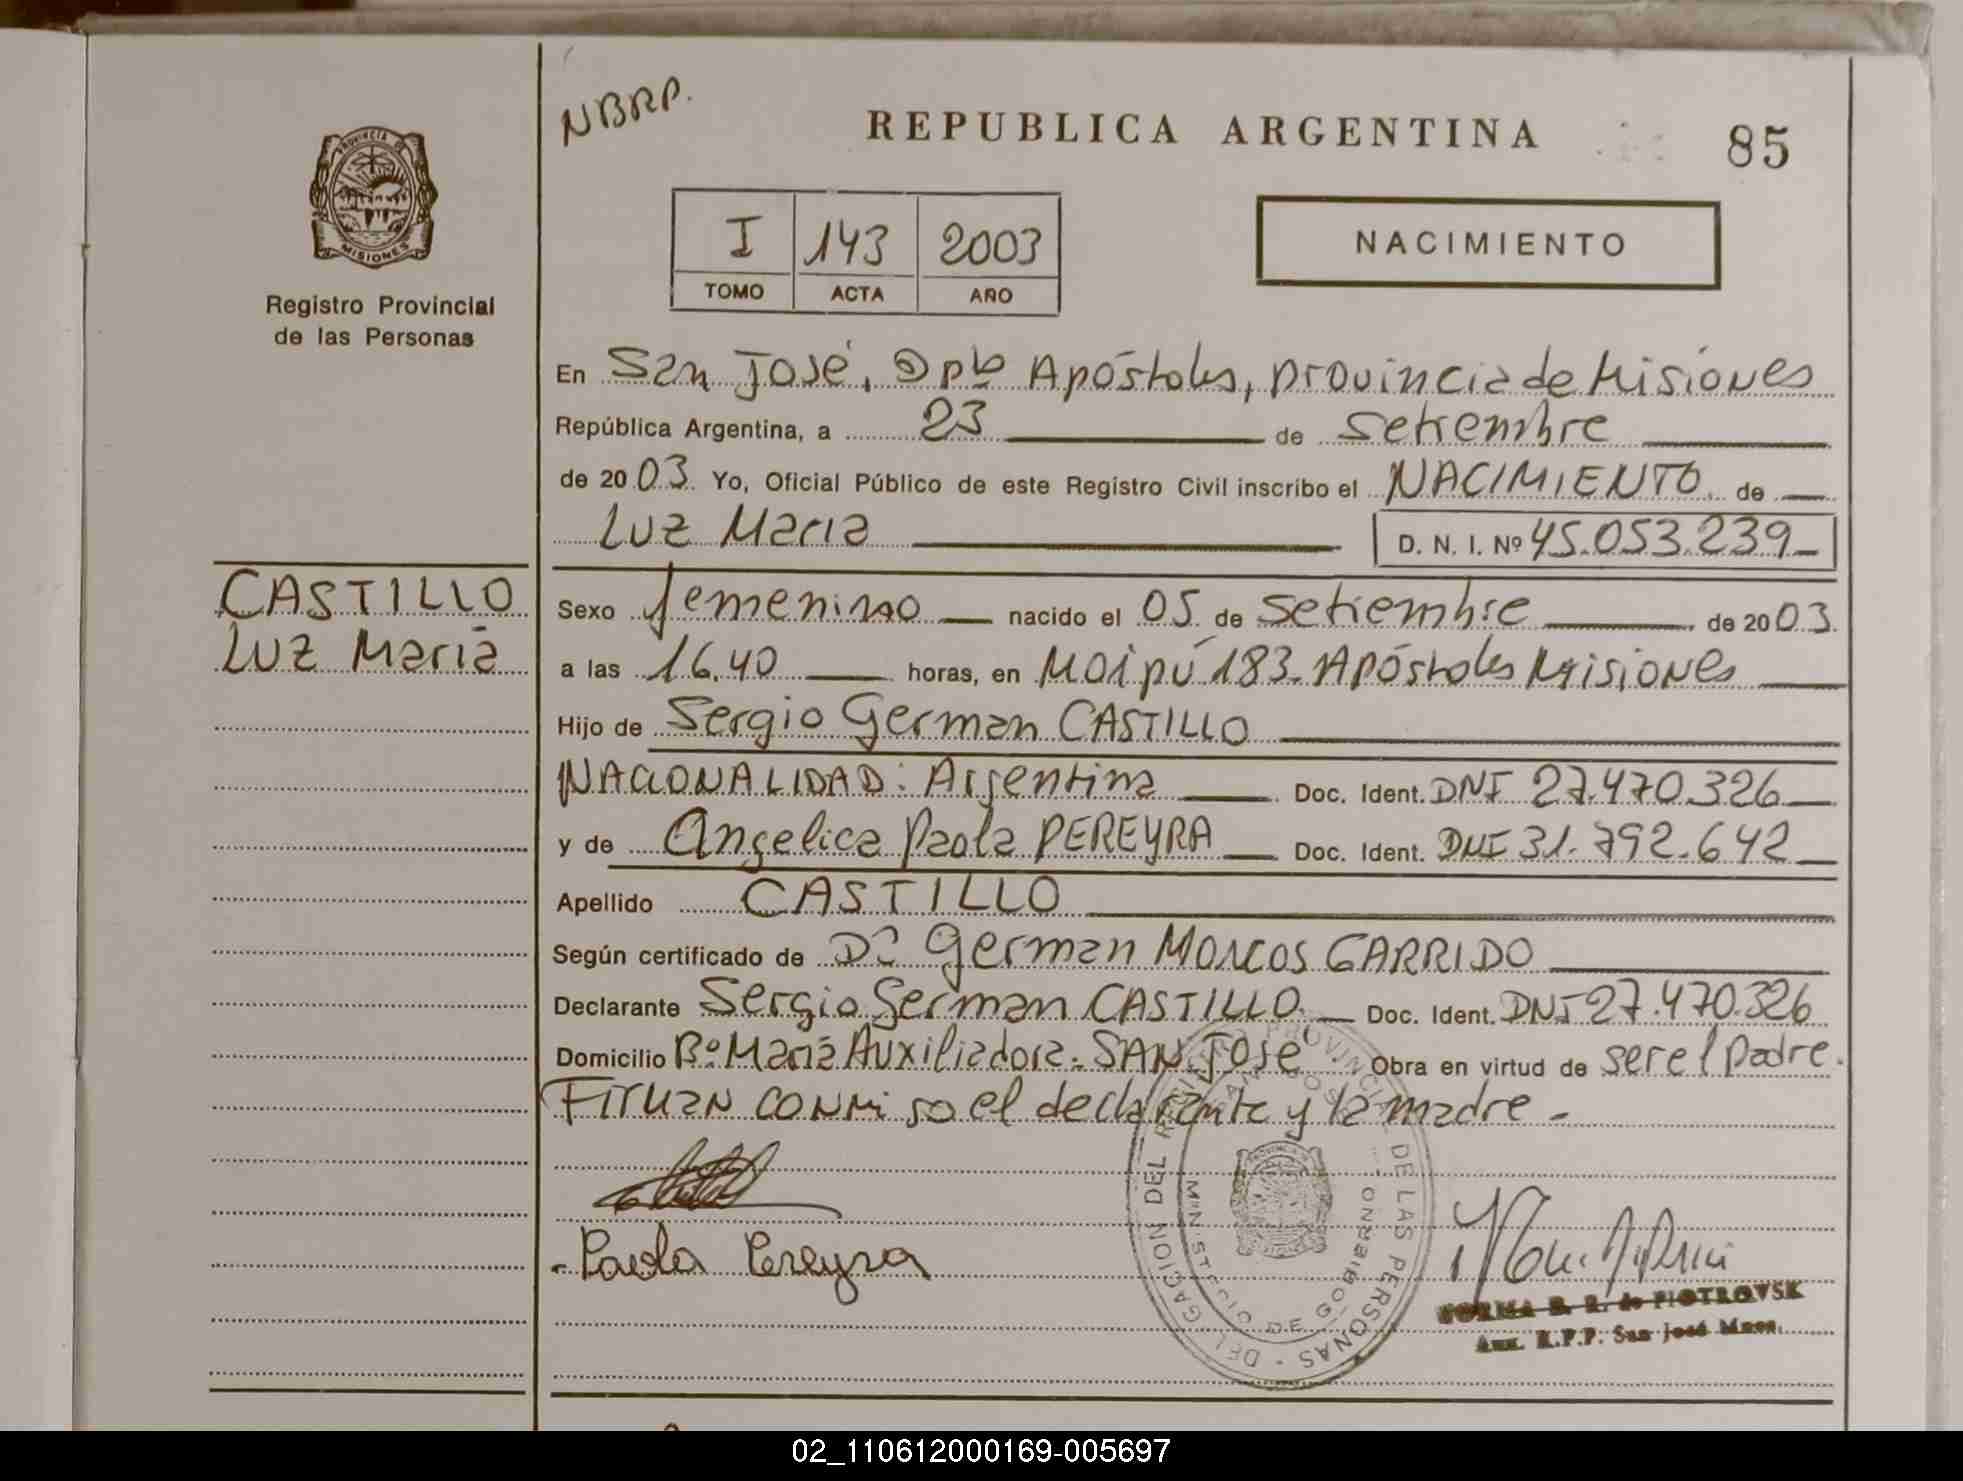 NBRP.
REPUBLICA ARGENTINA
85
PROVINCIA DE
MISIONES
Registro Provincial
de las Personas
I 143 2003
TOMO ACTA AÑO
NACIMIENTO
En San José, Dpto Apóstoles, provincia de Misiones
República Argentina, a 23 de Setiembre
de 2003. Yo, Oficial Público de este Registro Civil inscribo el NACIMIENTO de
Luz María D. N. I. Nº 45.053.239
CASTILLO
Luz María
Sexo femenino nacido el 05 de Setiembre de 2003.
a las 16.40 horas, en Maipú 183. Apóstoles Misiones
Hijo de Sergio German CASTILLO
NACIONALIDAD: Argentina Doc. Ident. DNI 27.470.326
y de Angelica Paola PEREYRA Doc. Ident. DNI 31.792.642
Apellido CASTILLO
Según certificado de Dr German Marcos GARRIDO
Declarante Sergio German CASTILLO. Doc. Ident. DNI 27.470.326
Domicilio Bº María Auxiliadora. SAN José Obra en virtud de ser el padre.
Firman conmigo el declarante y la madre -
Paola Pereyra
DELEGACION DEL REGISTRO PROVINCIAL DE LAS PERSONAS
SAN JOSE
MINISTERIO DE GOBIERNO
NORMA B. R. de PIOTROVSK
Aux. R.P.P. San José Mnes.
02_110612000169-005697